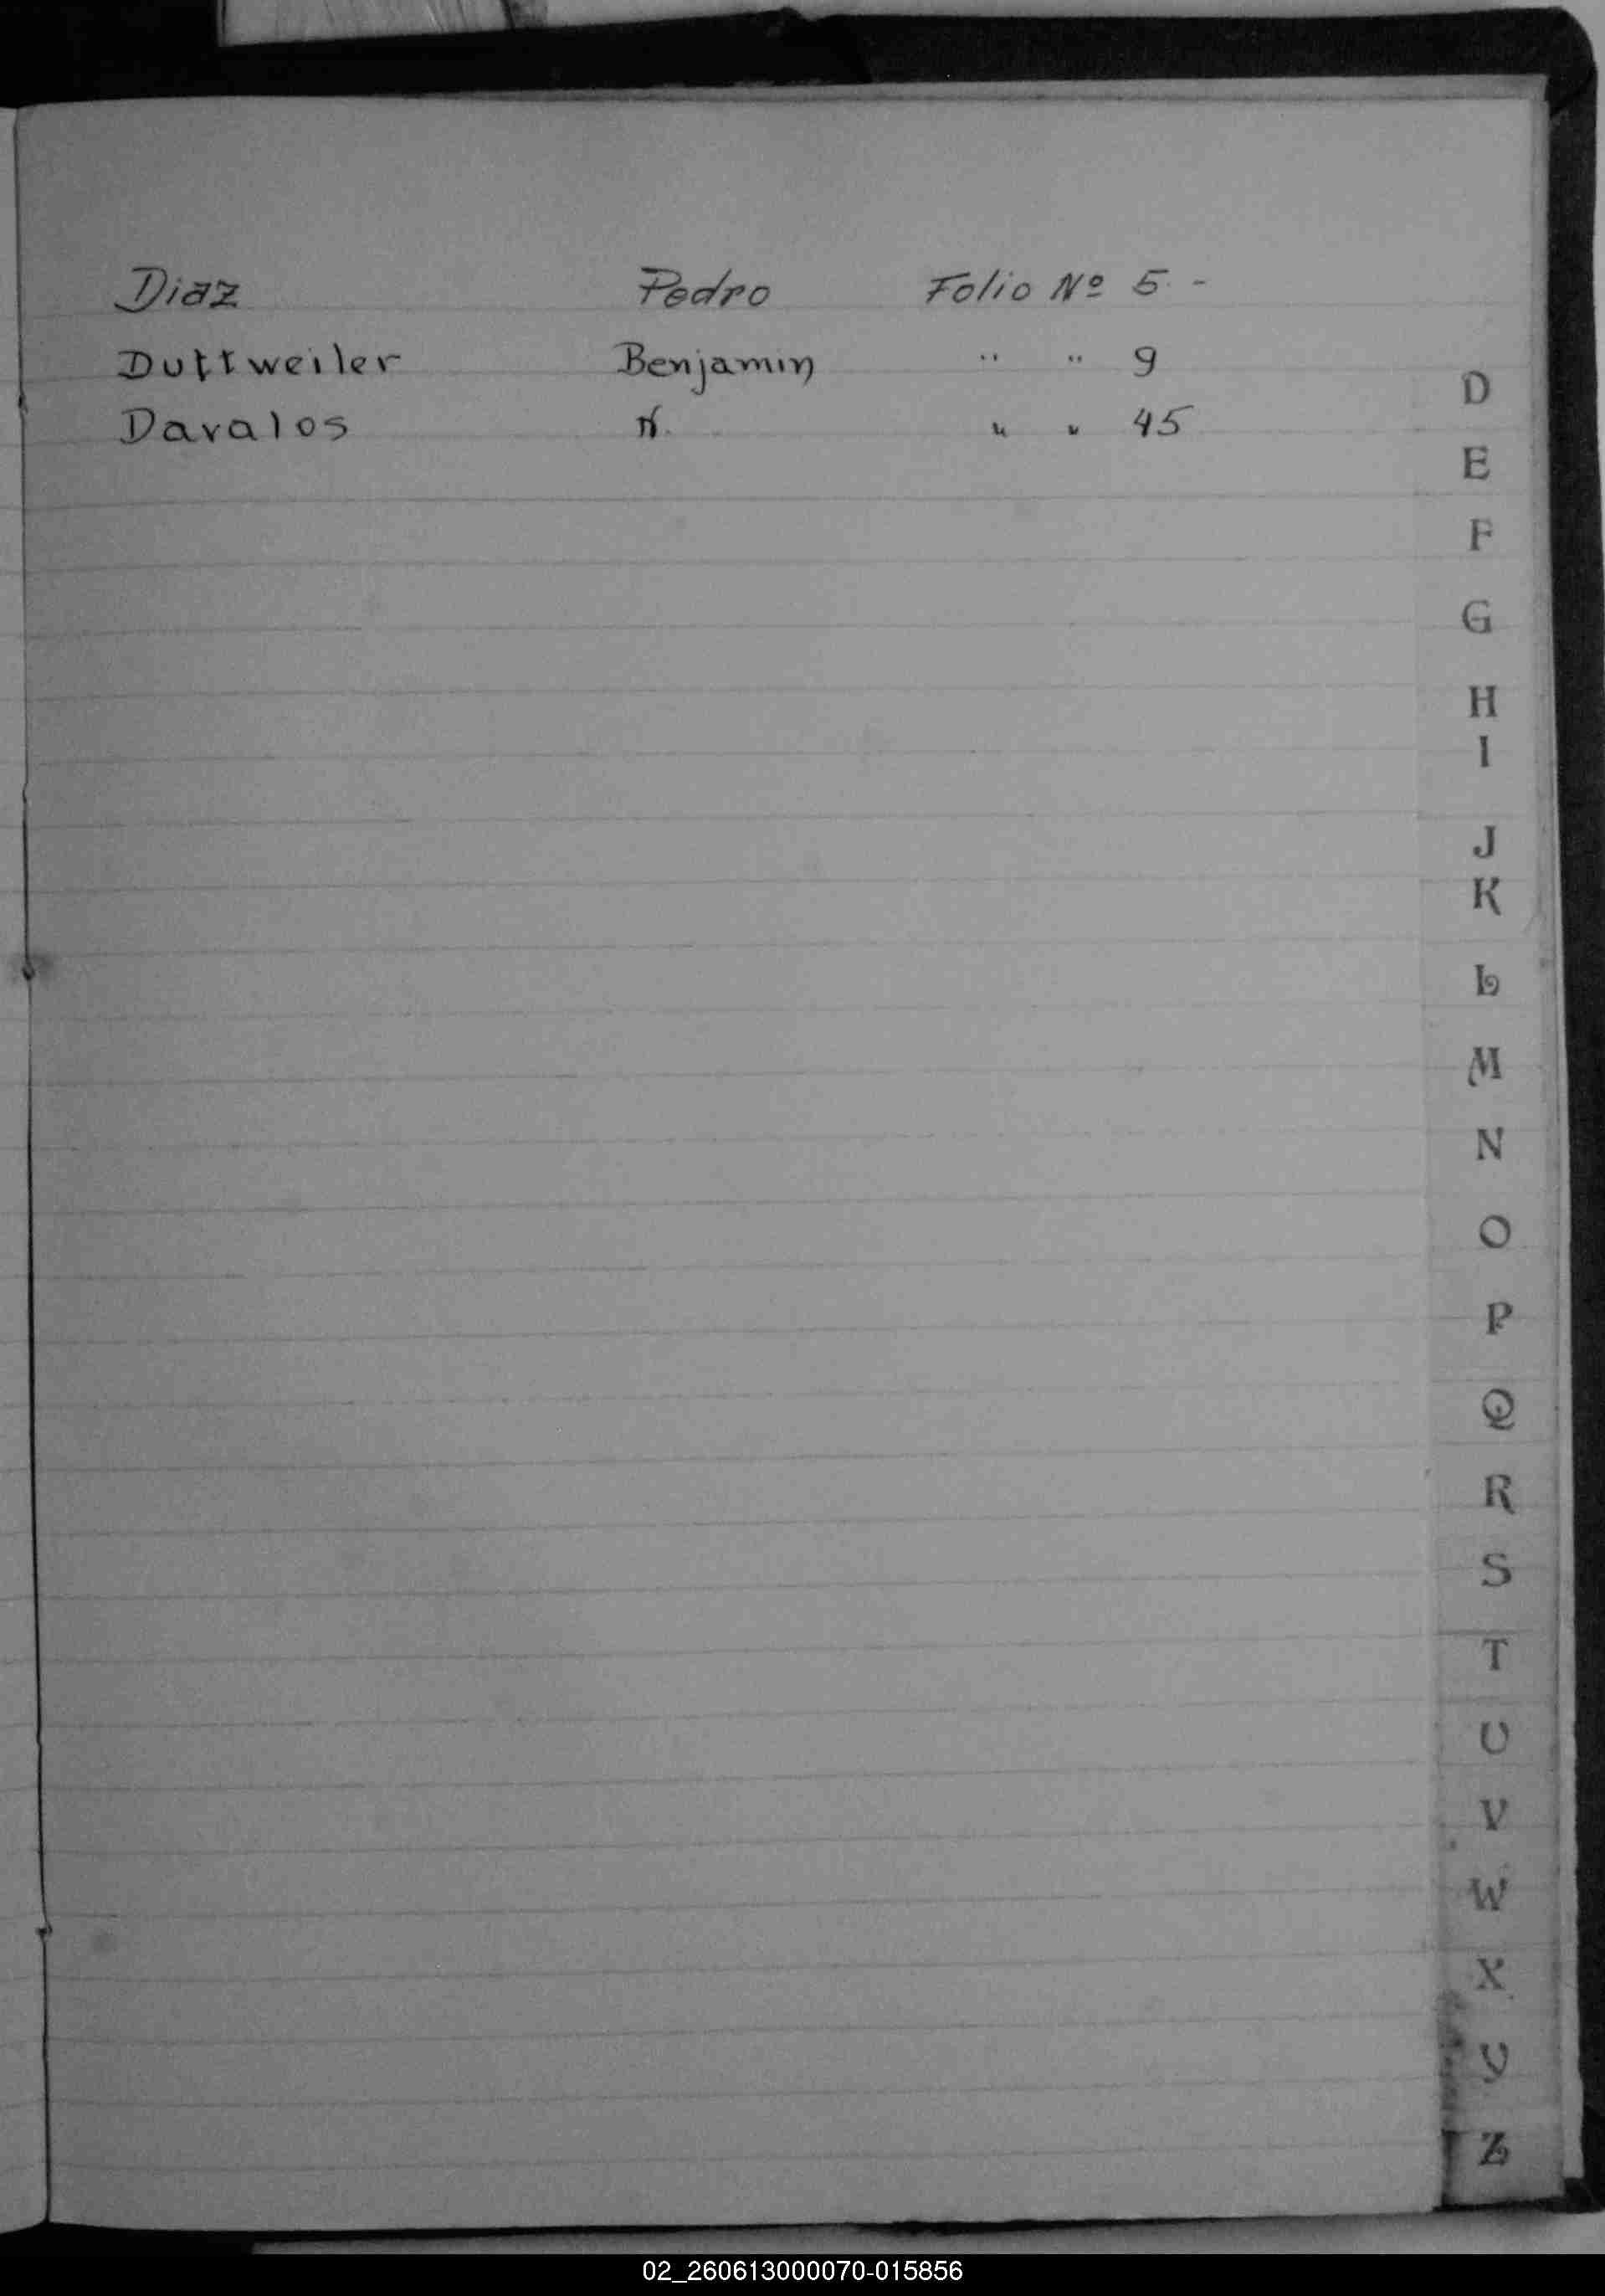 Diaz Pedro Folio Nº 5 -
Duttweiler Benjamin " " 9
Davalos N. " " 45
D
E
F
G
H
I
J
K
L
M
N
O
P
Q
R
S
T
U
V
W
X
Y
Z
02_260613000070-015856